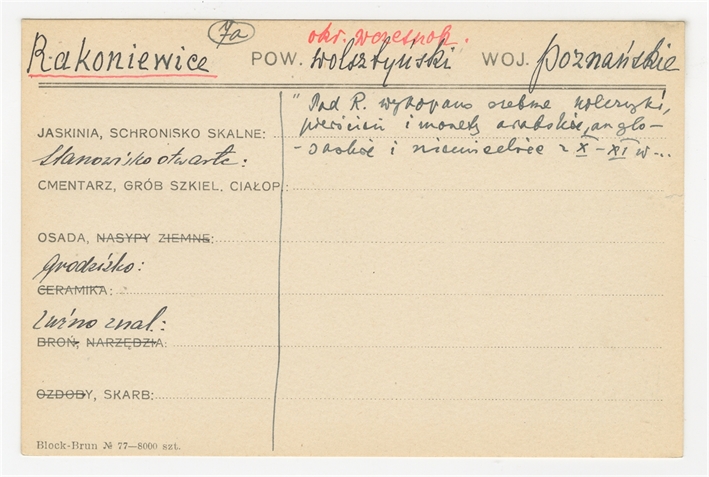 7a
okr. wczesnok.
Rakoniewice POW. wolsztyński WOJ. poznańskie
"Pod R. wykopano srebrne kolczyki,
JASKINIA, SCHRONISKO SKALNE: pierścień i monety arabskie, anglo-
Stanowisko otwarte: -saskie i niemieckie z X-XI w...
CMENTARZ, GRÓB SZKIEL. CIAŁOP.:
OSADA, NASYPY ZIEMNE:
Grodzisko:
CERAMIKA:
Luźno znal.:
BROŃ, NARZĘDZIA:
OZDOBY, SKARB:
Block-Brun № 77—8000 szt.